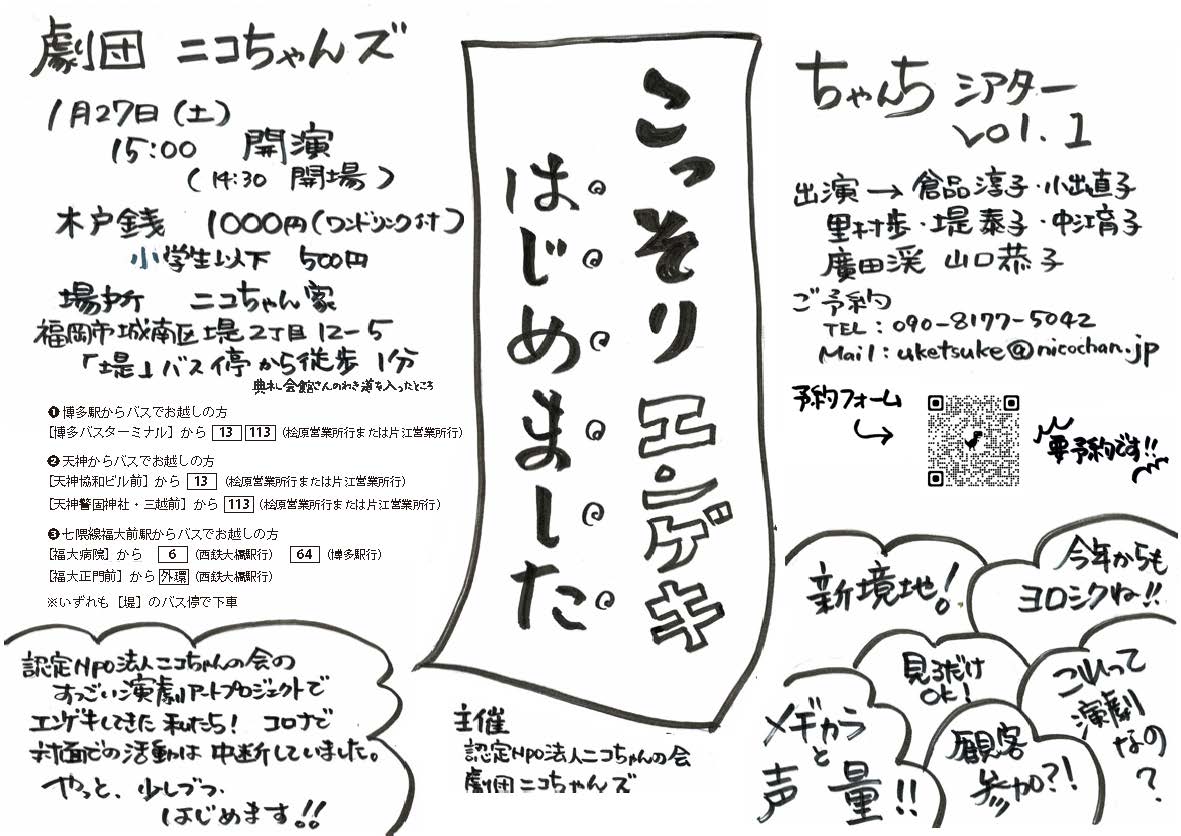 劇団 ニコちゃんズ
1月27日(土)
15:00 開演
(14:30 開場)
木戸銭 1000円(ワンドリンク付)
小学生以下 500円
場所 ニコちゃん家
福岡市城南区堤2丁目12-5
「堤」バス停から徒歩1分
典礼会館さんのわき道を入ったところ
❶博多駅からバスでお越しの方
[博多バスターミナル] から 13 113 (桧原営業所行または片江営業所行)
❷天神からバスでお越しの方
[天神協和ビル前] から 13 (桧原営業所行または片江営業所行)
[天神警固神社・三越前] から 113 (桧原営業所行または片江営業所行)
❸七隈線福大前駅からバスでお越しの方
[福大病院] から 6 (西鉄大橋駅行) 64 (博多駅行)
[福大正門前] から 外環 (西鉄大橋駅行)
※いずれも [堤] のバス停で下車
認定NPO法人ニコちゃんの会の
すっごい演劇アートプロジェクトで
エンゲキしてきた私たち! コロナで
対面での活動は中断していました。
やっと、少しづつ、
はじめます!!
こっそりエンゲキ
はじめました
主催
認定NPO法人ニコちゃんの会
劇団ニコちゃんズ
ちゃんち シアター
vol.1
出演→倉品淳子・小出直子
里村歩・堤泰子・中江育子
廣田渓 山口恭子
ご予約
TEL:090-8177-5042
Mail:uketsuke@nicochan.jp
予約フォーム
要予約です!!
新境地!
今年からも
ヨロシクね!!
見るだけ
OK!
これって
演劇
なの
?
メヂカラ
と
声量!!
観客
参加?!